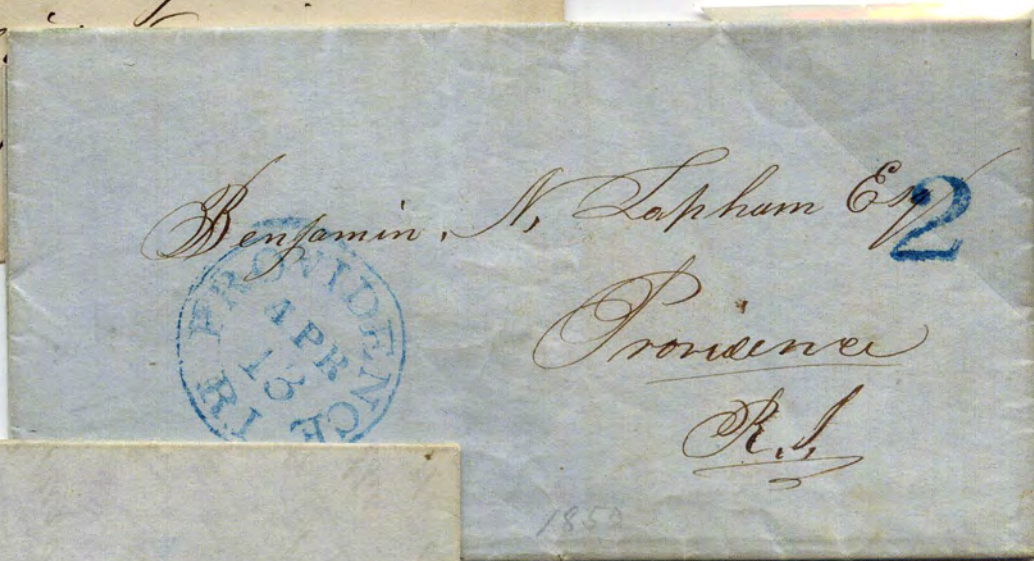 Benjamin. N. Lapham Esq
2
PROVIDENCE
R I
APR
13
Providence
R. I.
1850